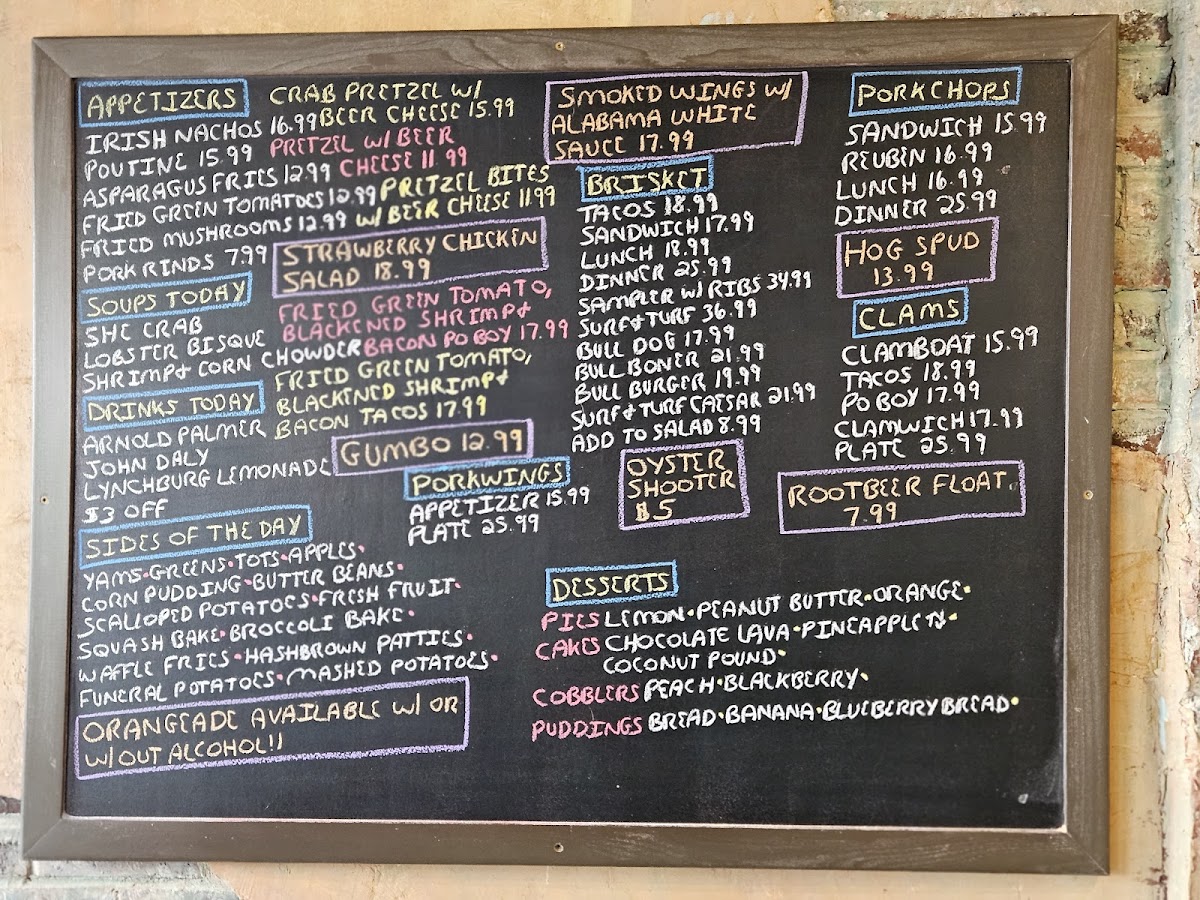 APPETIZERS
IRISH NACHOS 16.99
POUTINE 15.99
ASPARAGUS FRIES 12.99
FRIED GREEN TOMATOES 12.99
FRIED MUSHROOMS 12.99
PORK RINDS 7.99
CRAB PRETZEL W/
BEER CHEESE 15.99
PRETZEL W/ BEER
CHEESE 11.99
PRETZEL BITES
W/ BEER CHEESE 11.99
STRAWBERRY CHICKEN
SALAD 18.99
SOUPS TODAY
SHE CRAB
LOBSTER BISQUE
SHRIMP & CORN CHOWDER
FRIED GREEN TOMATO,
BLACKENED SHRIMP &
BACON PO BOY 17.99
FRIED GREEN TOMATO,
BLACKENED SHRIMP &
BACON TACOS 17.99
DRINKS TODAY
ARNOLD PALMER
JOHN DALY
LYNCHBURG LEMONADE
$3 OFF
GUMBO 12.99
PORKWINGS
APPETIZER 15.99
PLATE 25.99
SIDES OF THE DAY
YAMS • GREENS • TOTS • APPLES •
CORN PUDDING • BUTTER BEANS •
SCALLOPED POTATOES • FRESH FRUIT •
SQUASH BAKE • BROCCOLI BAKE •
WAFFLE FRIES • HASHBROWN PATTIES •
FUNERAL POTATOES • MASHED POTATOES •
ORANGEADE AVAILABLE W/ OR
W/OUT ALCOHOL!!
SMOKED WINGS W/
ALABAMA WHITE
SAUCE 17.99
BRISKET
TACOS 18.99
SANDWICH 17.99
LUNCH 18.99
DINNER 25.99
SAMPLER W/ RIBS 34.99
SURF & TURF 36.99
BULL DOG 17.99
BULL BONER 21.99
BULL BURGER 19.99
SURF & TURF CAESAR 21.99
ADD TO SALAD 8.99
OYSTER
SHOOTER
$5
PORKCHOPS
SANDWICH 15.99
REUBEN 16.99
LUNCH 16.99
DINNER 25.99
HOG SPUD
13.99
CLAMS
CLAMBOAT 15.99
TACOS 18.99
PO BOY 17.99
CLAMWICH 17.99
PLATE 25.99
ROOTBEER FLOAT
7.99
DESSERTS
PIES LEMON • PEANUT BUTTER • ORANGE •
CAKES CHOCOLATE LAVA • PINEAPPLE •
COCONUT POUND •
COBBLERS PEACH • BLACKBERRY •
PUDDINGS BREAD • BANANA • BLUEBERRY BREAD •